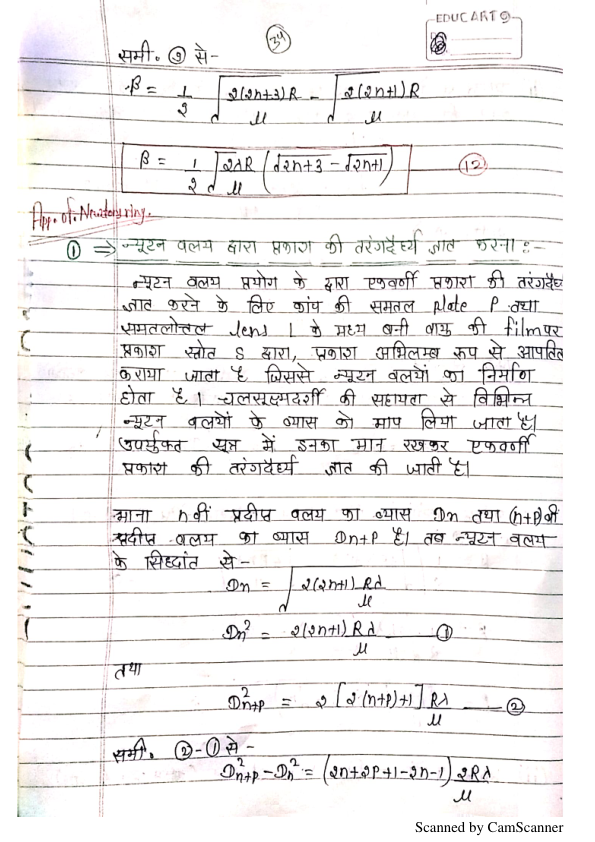 EDUCART
34
समी. ⑨ से-
β = 1/2 √(2(2n+3)R/μ) - √(2(2n+1)R/μ)
β = 1/2 √(2λR/μ) (√2n+3 - √2n+1) ⑫
App. of. Newton ring.
① ⇒ न्यूटन वलय द्वारा प्रकाश की तरंगदैर्ध्य ज्ञात करना :-
न्यूटन वलय प्रयोग के द्वारा एकवर्णी प्रकाश की तरंगदैर्ध्य
ज्ञात करने के लिए कांच की समतल plate P तथा
समतलोत्तल lens L के मध्य बनी वायु की film पर
प्रकाश स्त्रोत S द्वारा, प्रकाश अभिलम्ब रूप से आपतित
कराया जाता है जिससे न्यूटन वलयों का निर्माण
होता है। चलसूक्ष्मदर्शी की सहायता से विभिन्न
न्यूटन वलयों के व्यास को माप लिया जाता है।
उपर्युक्त सूत्र में इनका मान रखकर एकवर्णी
प्रकाश की तरंगदैर्ध्य ज्ञात की जाती है।
माना n वीं प्रदीप्त वलय का व्यास Dn तथा (n+p) वीं
प्रदीप्त वलय का व्यास Dn+P है। तब न्यूटन वलय
के सिध्दांत से -
Dn = √(2(2n+1) Rλ/μ)
Dn² = 2(2n+1) Rλ/μ — ①
तथा
D²n+p = 2 [2(n+p)+1] Rλ/μ — ②
समी. ②-① से -
D²n+p - Dn² = (2n+2P+1-2n-1) 2Rλ/μ
Scanned by CamScanner